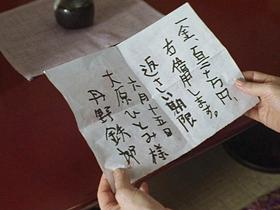 一金、百二十万円、
右借用します。
返さい期限
六月二十五日
大原ひとみ様
丹野鉄郎